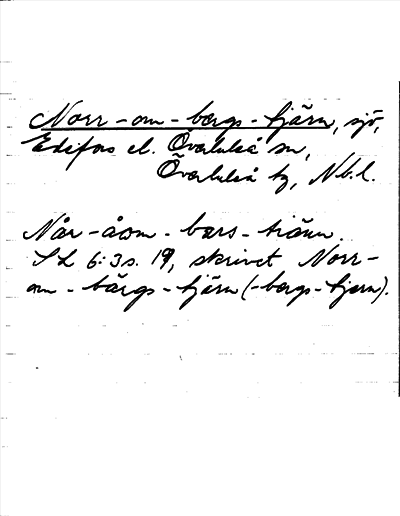 Norr-om-bergs-tjärn, sjö,
Edefors el. Överluleå sn,
Överluleå tg, Nb.l.
Når-åom-bærs-tiänn.
SL 6:3 s. 19, skrivet Norr-
om-bärgs-tjärn (-bergs-tjern).